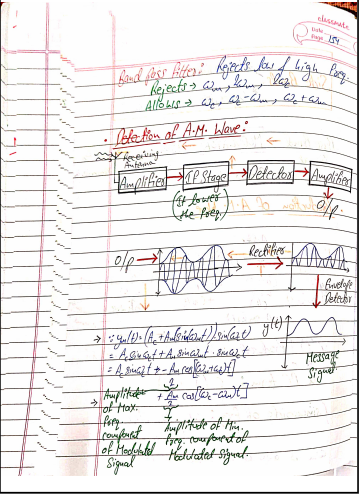 classmate
Date
Page 154
Band pass filter: Rejects low & high freq.
Rejects → ωm, 2ωm, 2ωc
Allows → ωc, ωc-ωm, ωc+ωm
• Detection of A.M. Wave:
Receiving
Antenna
Amplifier → IF Stage → Detector → Amplifier
(It lower
the freq.)
O/p
O/p
Rectifier
Envelope
Detector
y(t)
Message
Signal.
→ ∵ ym(t) = (Ac+Am sin ωmt) sin(ωct)
= Ac sin ωct + Am sin ωmt · sin ωct
= Ac sin ωct + - Am/2 cos[(ωm+ωc)t]
+ Am/2 cos[(ωc-ωm)t]
→ Amplitude
of Max.
freq.
component
of Modulated
Signal
Amplitude of Min.
freq. component of
Modulated Signal.